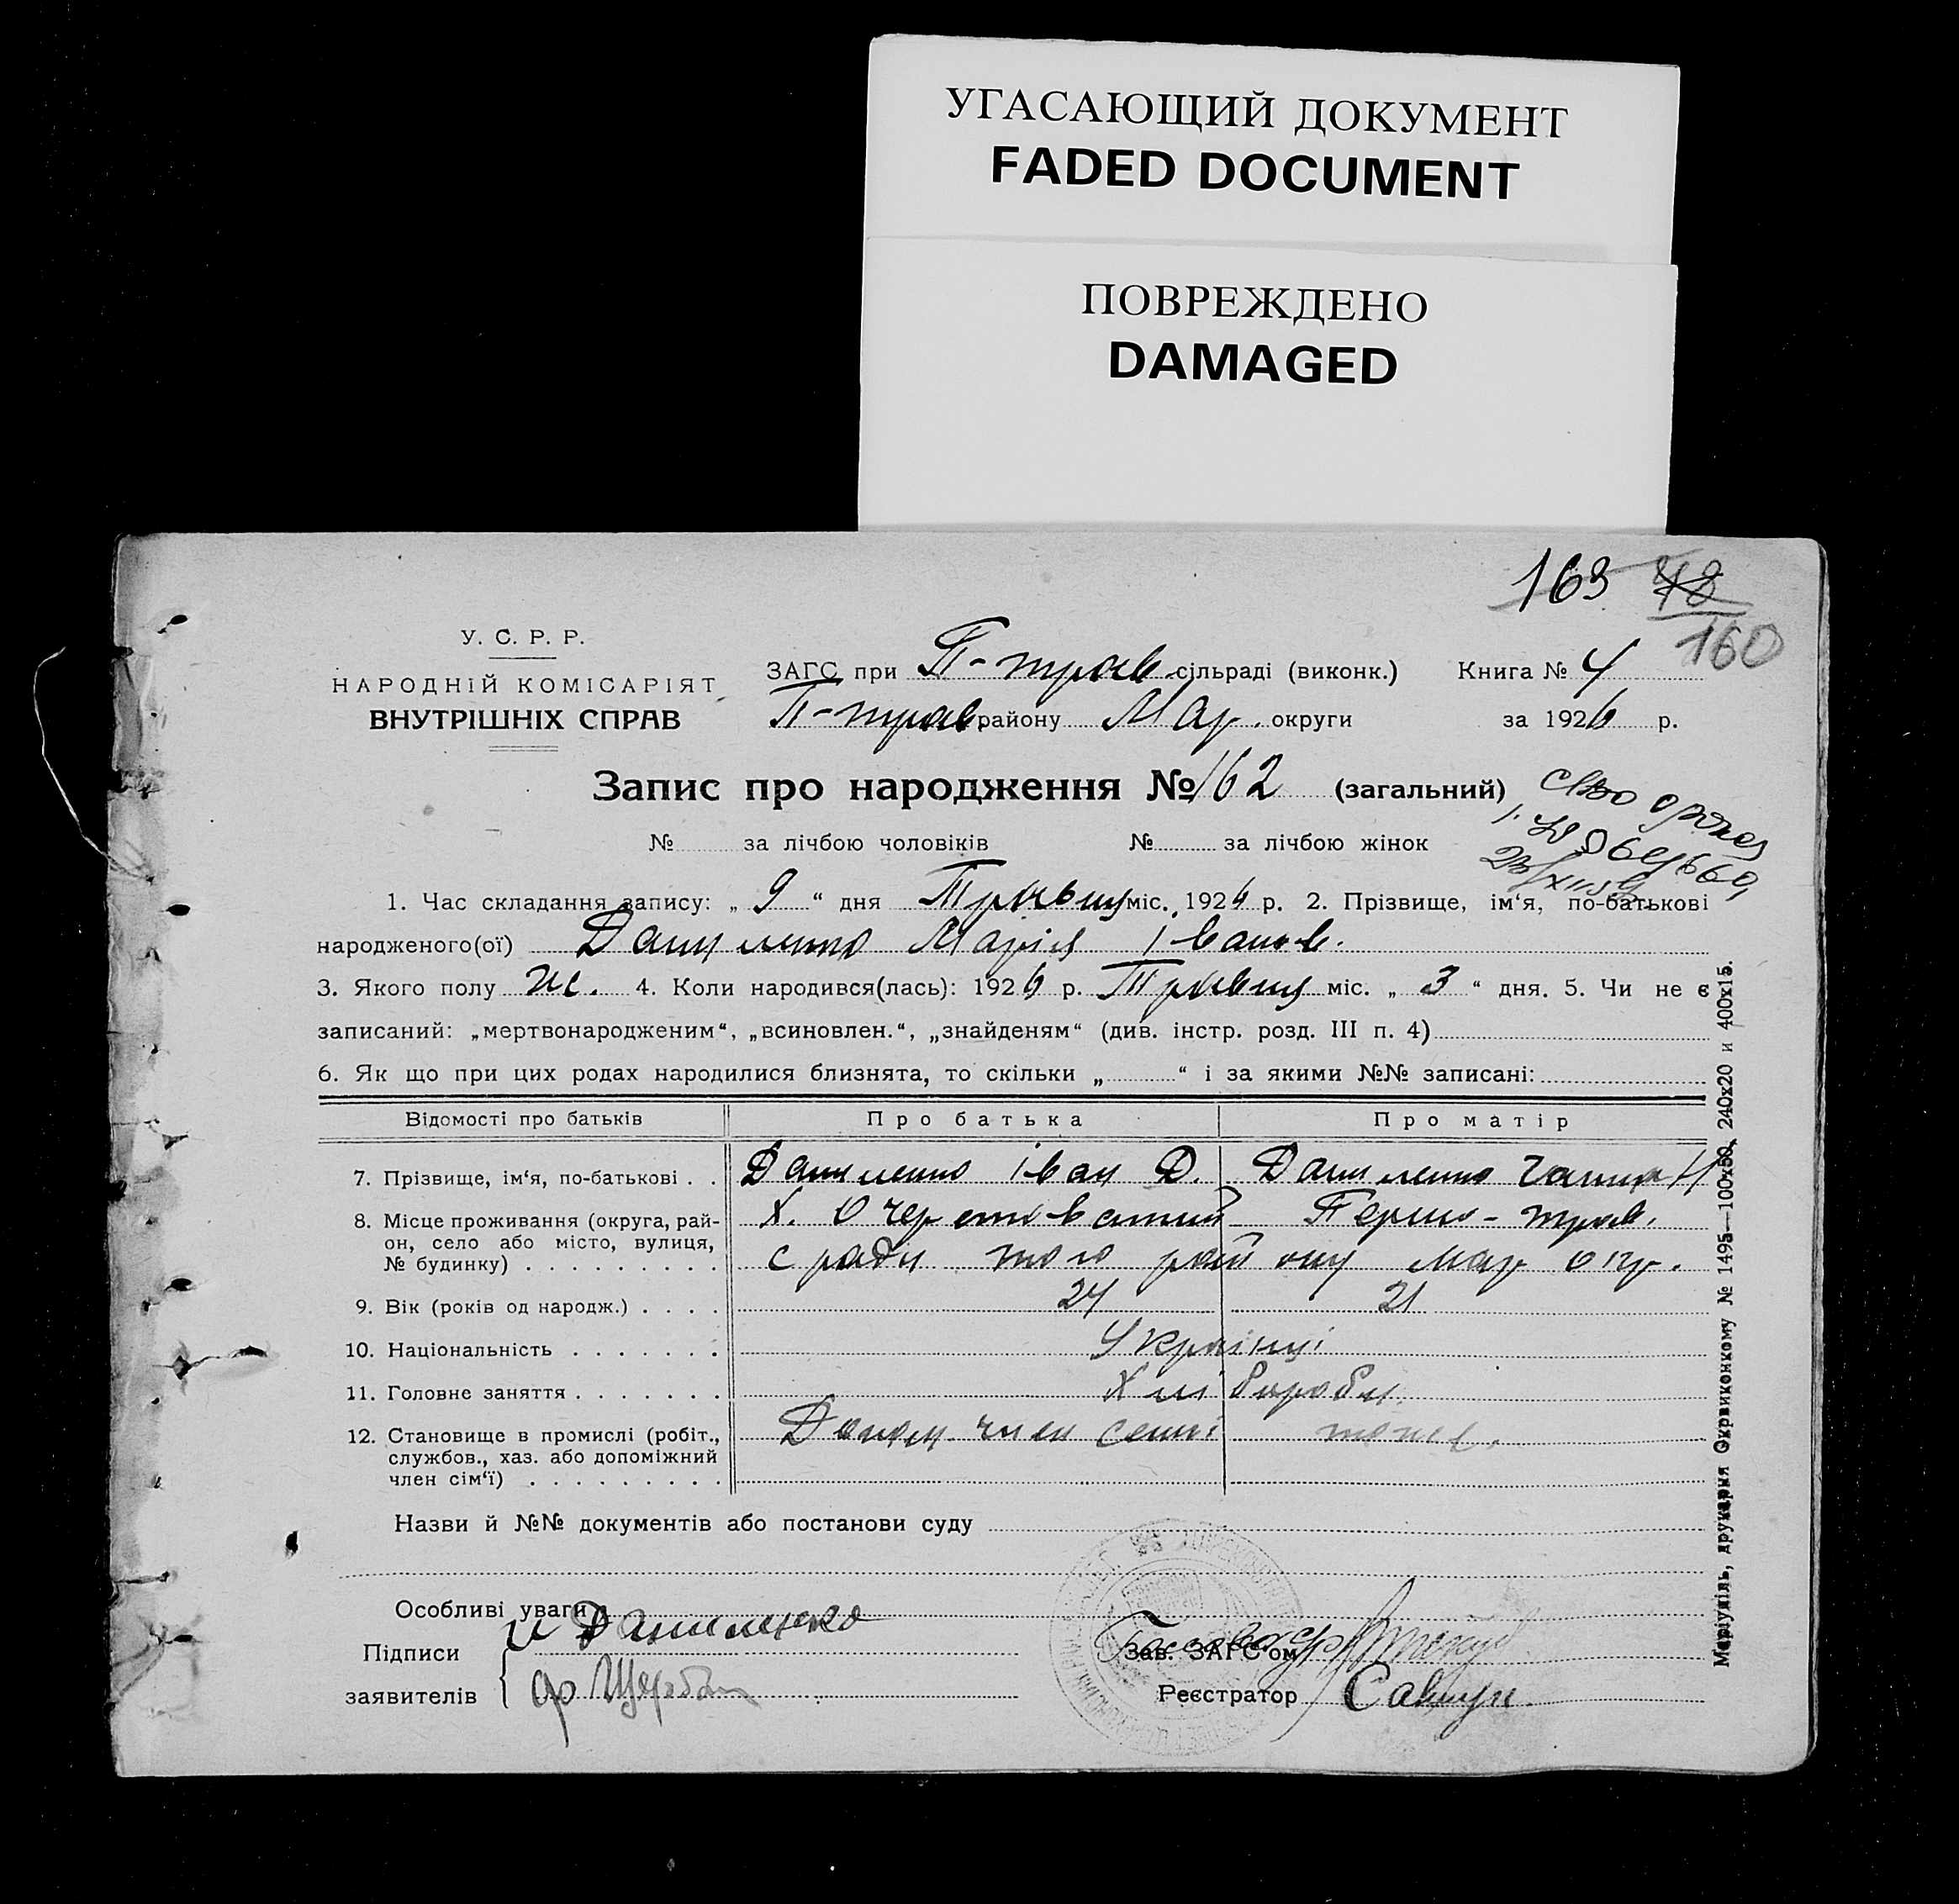 УГАСАЮЩИЙ ДОКУМЕНТ
FADED DOCUMENT
ПОВРЕЖДЕНО
DAMAGED
163 48
160
У. С. Р. Р.
НАРОДНІЙ КОМІСАРІЯТ
ВНУТРІШНІХ СПРАВ
ЗАГС при П-трав. сільраді (виконк.) Книга № 4
П-трав. району Мар. округи за 1926 р.
Запис про народження № 162 (загальний)
№ за лічбою чоловіків № за лічбою жінок
1. Час складання запису: „ 9 “ дня Травня міс. 1926 р. 2. Прізвище, ім‘я, по-батькові
народженого(ої) Даниленко Марія Іванов.
3. Якого полу ж. 4. Коли народився(лась): 1926 р. Травня міс. „ 3 “ дня. 5. Чи не є
записаний: „мертвонародженим“, „всиновлен.“, „знайденям“ (див. інстр. розд. III п. 4)
6. Як що при цих родах народилися близнята, то скільки „ “ і за якими №№ записані:
Відомості про батьків Про батька Про матір
7. Прізвище, ім‘я, по-батькові . . Даниленко Іван Д. Даниленко Ганна Н
8. Місце проживання (округа, рай- Х. Очеретоватий Першо-трав.
он, село або місто, вулиця, с ради того району Мар окр.
№ будинку) . . . . . . . . .
9. Вік (років од народж.) . . . . 24 21
10. Національність . . . . . . . Українці
11. Головне заняття . . . . . . . Хлібороби
12. Становище в промислі (робіт., Допом. член семї тоже.
службов., хаз. або допоміжний
член сім‘ї) . . . . . . . . .
Назви й №№ документів або постанови суду
Особливі уваги
Підписи И Даниленко Зав. ЗАГС‘ом
заявителів Щерба Реєстратор Савчук
Маріупіль, друкарня Окрвиконкому № 1495—100х50, 240х20 и 400х15.